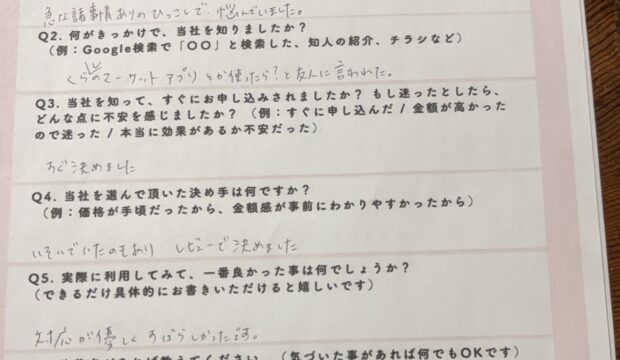 急な諸事情ありのひっこしで、悩んでいました。
Q2. 何がきっかけで、当社を知りましたか?
(例:Google検索で「〇〇」と検索した、知人の紹介、チラシなど)
くらしのマーケットアプリとか使ったら?と友人に言われた。
Q3. 当社を知って、すぐにお申し込みされましたか? もし迷ったとしたら、
どんな点に不安を感じましたか? (例:すぐに申し込んだ / 金額が高かった
ので迷った / 本当に効果があるか不安だった)
すぐ決めました
Q4. 当社を選んで頂いた決め手は何ですか?
(例:価格が手頃だったから、金額感が事前にわかりやすかったから)
いそいでいたのもあり レビューで決めました
Q5. 実際に利用してみて、一番良かった事は何でしょうか?
(できるだけ具体的にお書きいただけると嬉しいです)
対応が優しくすばらしかったです。
ください。 (気づいた事があれば何でもOKです)